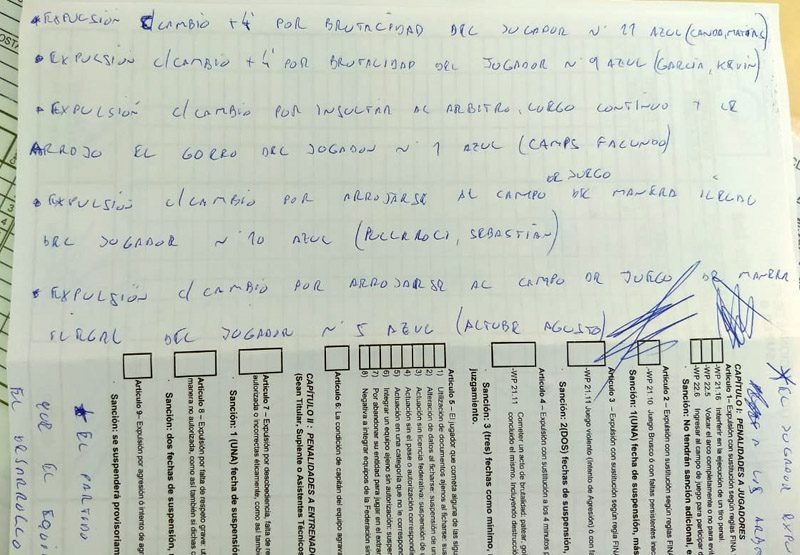 * EXPULSIÓN C/CAMBIO +4' POR BRUTALIDAD DEL JUGADOR Nº 11 AZUL (CANDA, MATÍAS)
* EXPULSIÓN C/CAMBIO +4' POR BRUTALIDAD DEL JUGADOR Nº 9 AZUL (GARCÍA, KEVIN)
* EXPULSIÓN C/CAMBIO POR INSULTAR AL ARBITRO, LUEGO CONTINUO + LE
ARROJO EL GORRO DEL JOGADOR Nº 1 AZUL (CAMPS FACUNDO)
DE JUEGO
* EXPULSIÓN C/CAMBIO POR ARROJARSE AL CAMPO DE MANERA ILEGAL
DEL JUGADOR Nº 10 AZUL (PELLAROCI, SEBASTIÁN)
* EXPULSIÓN C/CAMBIO POR ARROJARSE AL CAMPO DE JUEGO DE MANERA
ILEGAL DEL JUGADOR Nº 5 AZUL (ALTUBE AGUSTO)
* EL JUGADOR EXPU
A LOS ARB
CAPÍTULO I: PENALIDADES A JUGADORES
Artículo 1– Expulsión con sustitución según reglas FIN
-WP 21.16 Interferir en la ejecución de un tiro penal.
-WP 22.5 Volcar el arco completamente o no para evi
-WP 22.6 Ingresar al campo de juego para participar
Sanción: No tendrán sanción adicional, e
Artículo 2 – Expulsión con sustitución según regla FIN
-WP 21.10 Juego Brusco o con faltas persistentes
Sanción: 1(UNA) fecha de suspensión, más
Artículo 3 – Expulsión con sustitución según regla FIN
-WP 21.11 Juego violento (Intento de Agresión) ó con fa
Sanción: 2(DOS) fechas de suspensión,
Artículo 4 – Expulsión con sustitución a los 4 minutos
-WP 21.11 Cometer un acto de brutalidad, patear, go
concluido el mismo. Incluyendo destrucción
Sanción: 3 (tres) fechas como mínimo,
juzgamiento.
Artículo 5 – El jugador que cometa alguna de las sigu
1) Utilización de documentos ajenos al ficharse: sus
2) Alteración de datos al ficharse: suspensión de un
3) Actuación sin licencia federativa: suspensión de
4) Actuación sin el pase o autorización correspon
5) Actuación en una categoría que no le correspon
6) Integrar un equipo ajeno sin autorización: suspen
7) Por abandonar su entidad para jugar en el extra
8) Negativa a integrar equipos de la Federación sin
Artículo 6: La condición de capitán del equipo agrava
CAPÍTULO II: PENALIDADES A ENTRENAD
(Sean Titular, Suplente o Asistentes Técnicos
Artículo 7 – Expulsión por desobediencia, falta de re
autorizada o incorrectas éticamente, como así també
Sanción: 1 (UNA) fecha de suspensión
Artículo 8 – Expulsión por falta de respeto grave, ut
manera no autorizada, como así también si dichas
Sanción: dos fechas de suspensión,
Artículo 9– Expulsión por agresión o intento de agre
Sanción: se suspenderá provisoriam
* EL PARTIDO
QUE EL EQUI
EL DESARROLLO